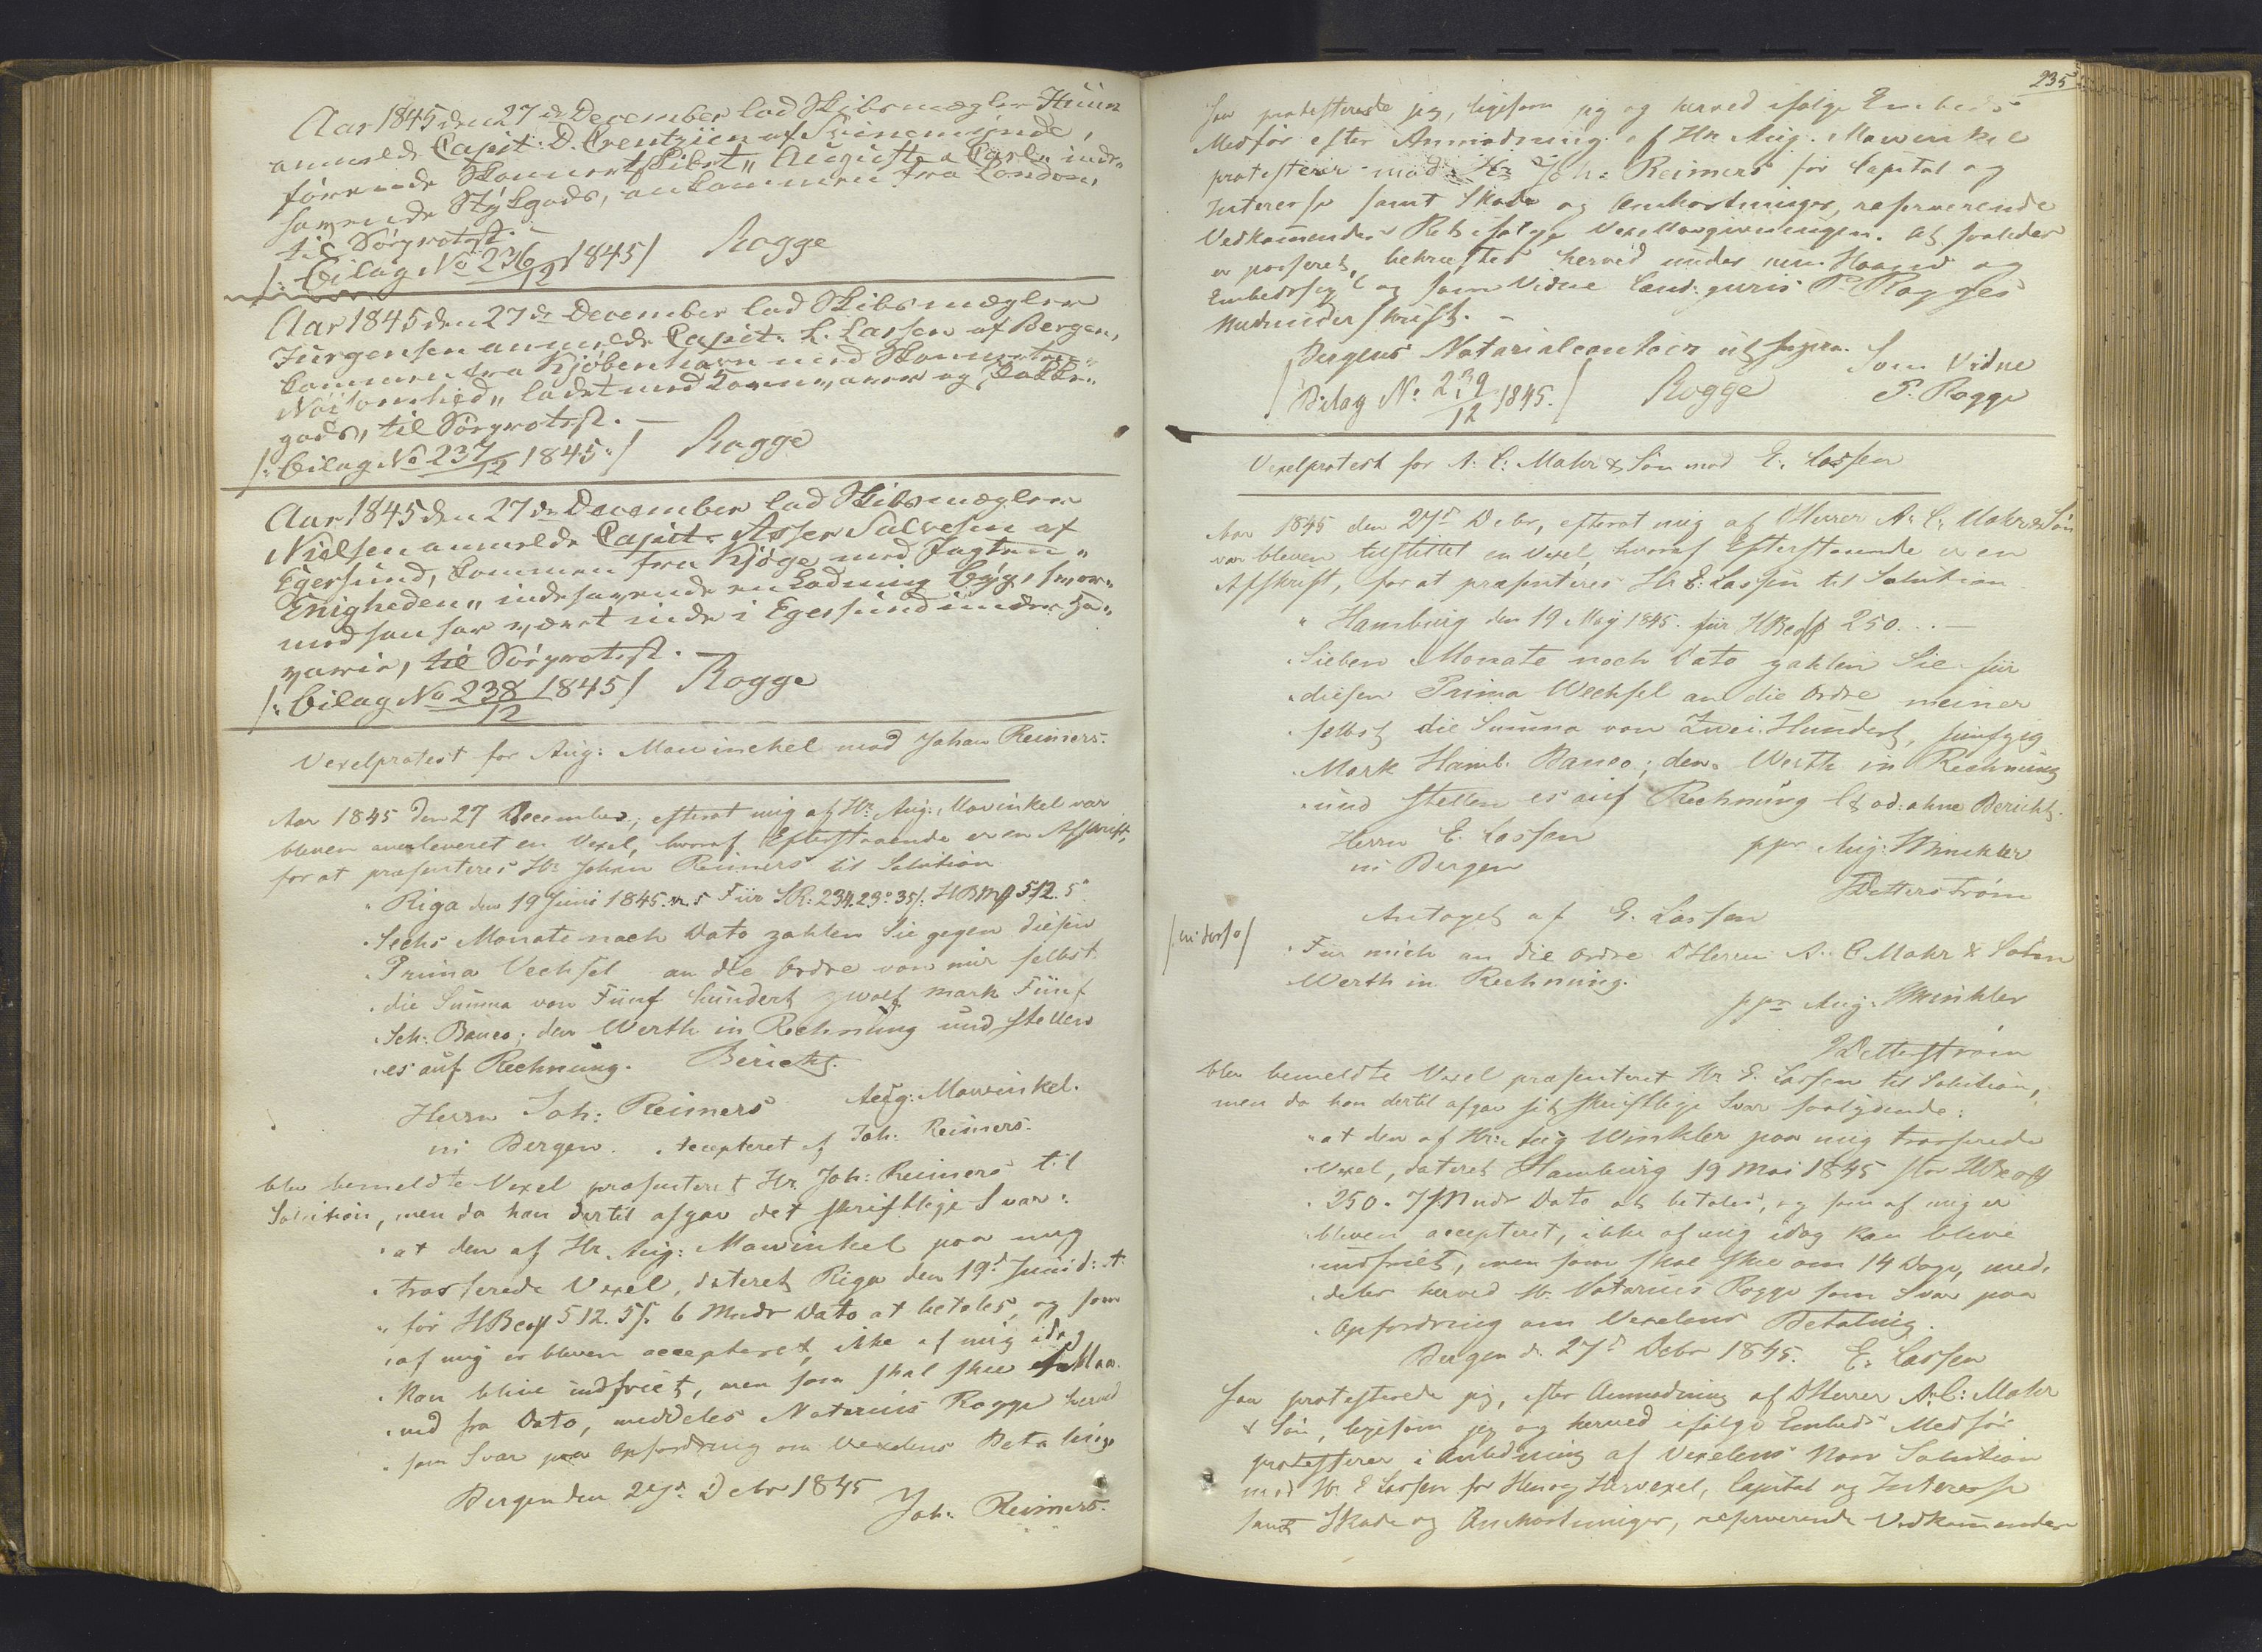 Aar 1845 den 27de December lod Skibsmægler Huun
anmelde Capit: D. Crentzien af Svinemünde,
förende Skonnertskibet „Auguste & Carl„ inde„
havende Stykgods, ankommen fra London,
til Söeprotest. —
/: Bilag No 236/12 1845/ Rogge
Aar 1845 den 27de December lod Skibsmægler
Jürgensen anmelde Capit. L. Larsen af Bergen,
kommen fra Kjöbenhavn med Skonnerten„
Nöisomhed„ ladet med Kornvarer og Pakke„
gods, til Söeprotest. —
/: Bilag No 237/12 1845:/ Rogge
Aar 1845 den 27de December lod Skibsmægler
Nielsen anmelde Capit. Asser Salvesen af
Egersund, kommen fra Kjöge med Jagten„
Enigheden„ indehavende en Ladning Byg, hvor„
med han har været inde i Egersund under Ha„
varie, til Söeprotest. —
/: Bilag No 238/12 1845/ Rogge
Vexelprotest for Aug: Mowinckel mod Johan Reimers.
Aar 1845 den 27 December, efterat mig af Hr. Aug: Mowinkel var
bleven overleveret en Vexel, hvoraf Efterstaaende er en Afskrift,
for at præsenteres Hr. Johan Reimers til Solution
„ Riga den 19 Juni 1845. Für SR: 234. 23. 35/. HBM 512. 5
„ Sechs Monate nach Dato zahlen Sie gegen diesen
„ Prima Vechsel an die Ordre von mir selbst
„ die Summa von Fünf hundert zwolf mark Fünf
„ Sch: Banco; den Werth in Rechnung und stellen
„ es auf Rechnung. Bericht.
Herrn Joh: Reimers Aug: Mowinkel.
in Bergen. Accepteret af Joh: Reimers.
blev bemeldte Vexel præsenteret Hr. Joh: Reimers til
Solution, men da han dertil afgav det skriftlige Svar:
„ at den af Hr. Aug: Mowinkel paa mig
„ trasserede Vexel, dateret Riga den 19d Juni d: A
„ for HBco 512. 5 6 Mndr Dato at betales, og som
„ af mig er bleven accepteret, ikke af mig idag
„ kan blive indfriet, men som skal skee Maa„
„ ned fra Dato, meddeles Notarius Rogge herved
„ som Svar paa Opfordring om Vexelens Betaling
Bergen den 27d Debr 1845
Joh: Reimers.
235
Saa protesterede jeg, ligesom jeg og herved ifølge Embeds
Medfør efter Anmodning af Hr. Aug. Mowinkel
protesterer mod Hr. Joh: Reimers for Capital og
Interesse samt Skade og Omkostninger, reserverende
Vedkommendes Ret ifølge Vexellovgivningen. At saaledes
er passeret, bekræftes herved under min Haand og
Embedssegl og som Vidne Cand: juris P. Rogges
Medunderskrift. —
Bergens Notarialcontoir ut supra. Som Vidne
/ Bilag No 239/12 1845. / Rogge P. Rogge
Vexelprotest for A: C: Mohr & Søn mod E. Lassen
Aar 1845 den 27d Debr, efterat mig af DHerrer A: C: Mohr & Søn
var bleven tilstillet en Vexel, hvoraf Efterstaaende er en
Afskrift, for at præsenteres Hr. E: Lassen til Solution
„ Hamburg den 19 May 1845. für HBco 250. . . —
„ Sieben Monate nach dato zahlen Sie für
„ diesen Prima Wechsel an die Ordre meiner
„ selbst die Summa von Zwei Hundert, fünfzig
„ Mark Hamb. Banco; den Werth in Rechnung
„ und stellen es auf Rechnung lt od: ohne Bericht.
Herrn E. Lassen ppr Aug: Winckler
in Bergen Wetterström
Antaget af E. Lassen
/ in dorso / „ Für mich an die Ordre DHerrn A. C Mohr & Søhn
Werth in Rechnung.
ppr Aug: Winkler
Wetterström
blev bemeldte Vexel præsenteret Hr. E. Lassen til Solution,
men da han dertil afgav sit skriftlige Svar saalydende:
„ at den af Hr: Aug Winkler paa mig trasserede
„ Vexel, dateret Hamburg 19 Mai 1845 stor HBco
„ 250. 7 Mndr Dato at betales, og som af mig er
„ bleven accepteret, ikke af mig idag kan blive
„ indfriet, men som skal skee om 14 Dage, med„
„ deles herved Hr. Notarius Rogge som Svar paa
„ Opfordring om Vexelens Betaling.
Bergen d: 27d Debr 1845. E. Lassen
Saa protesterede jeg, efter Anmodning af DHerrer A: C: Mohr
& Søn, ligesom jeg og herved ifølge Embeds Medfør
protesterer i Anledning af Vexelens Non Solution
mod Hr. E Lassen for Hen og Hervexel, Capital og Interesse
samt Skade og Omkostninger, reserverende Vedkommendes